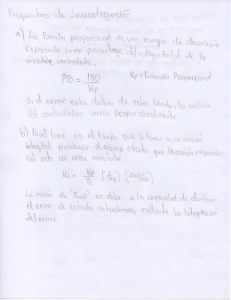 Preguntas de Investigación
a) La banda proporcional es un rango de desviación
expresado como porcentaje del rango total de la
variable controlada.
PB = 100 / Kp    Kp = Ganancia Proporcional
Si el error esta dentro de esta banda, la salida
del controlador varía proporcionalmente
b) Real time es el tiempo que le toma a la acción
integral producir el mismo efecto que la acción proporcional
ante un error
Ki =
La razón de "Real" se debe a la capacidad de eliminar
el error de estado estacionario mediante la integración
del error.